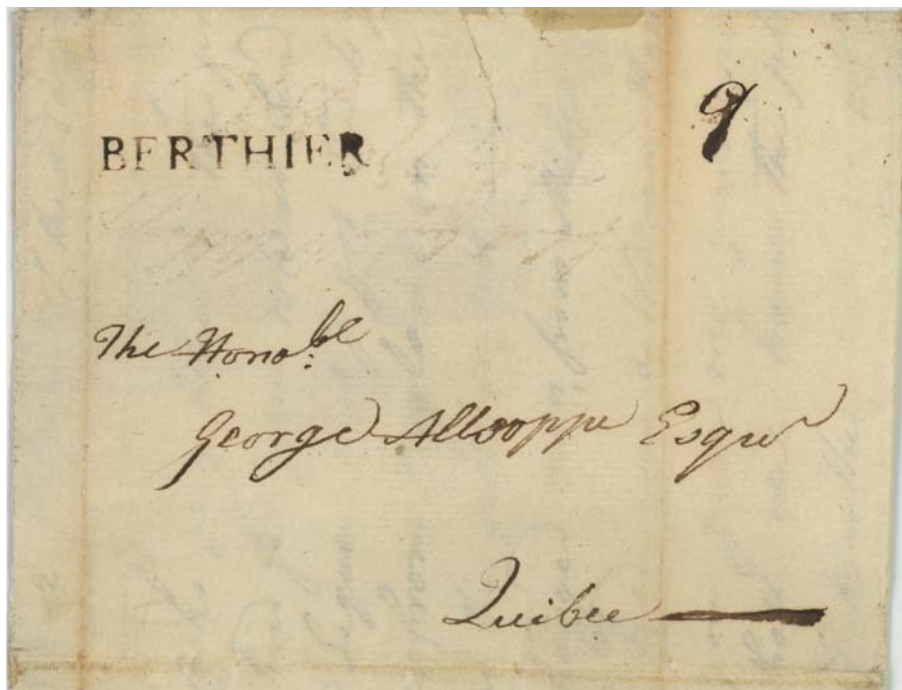 BERTHIER
9
The Honoble
George Allsoppe Esqr
Quibec